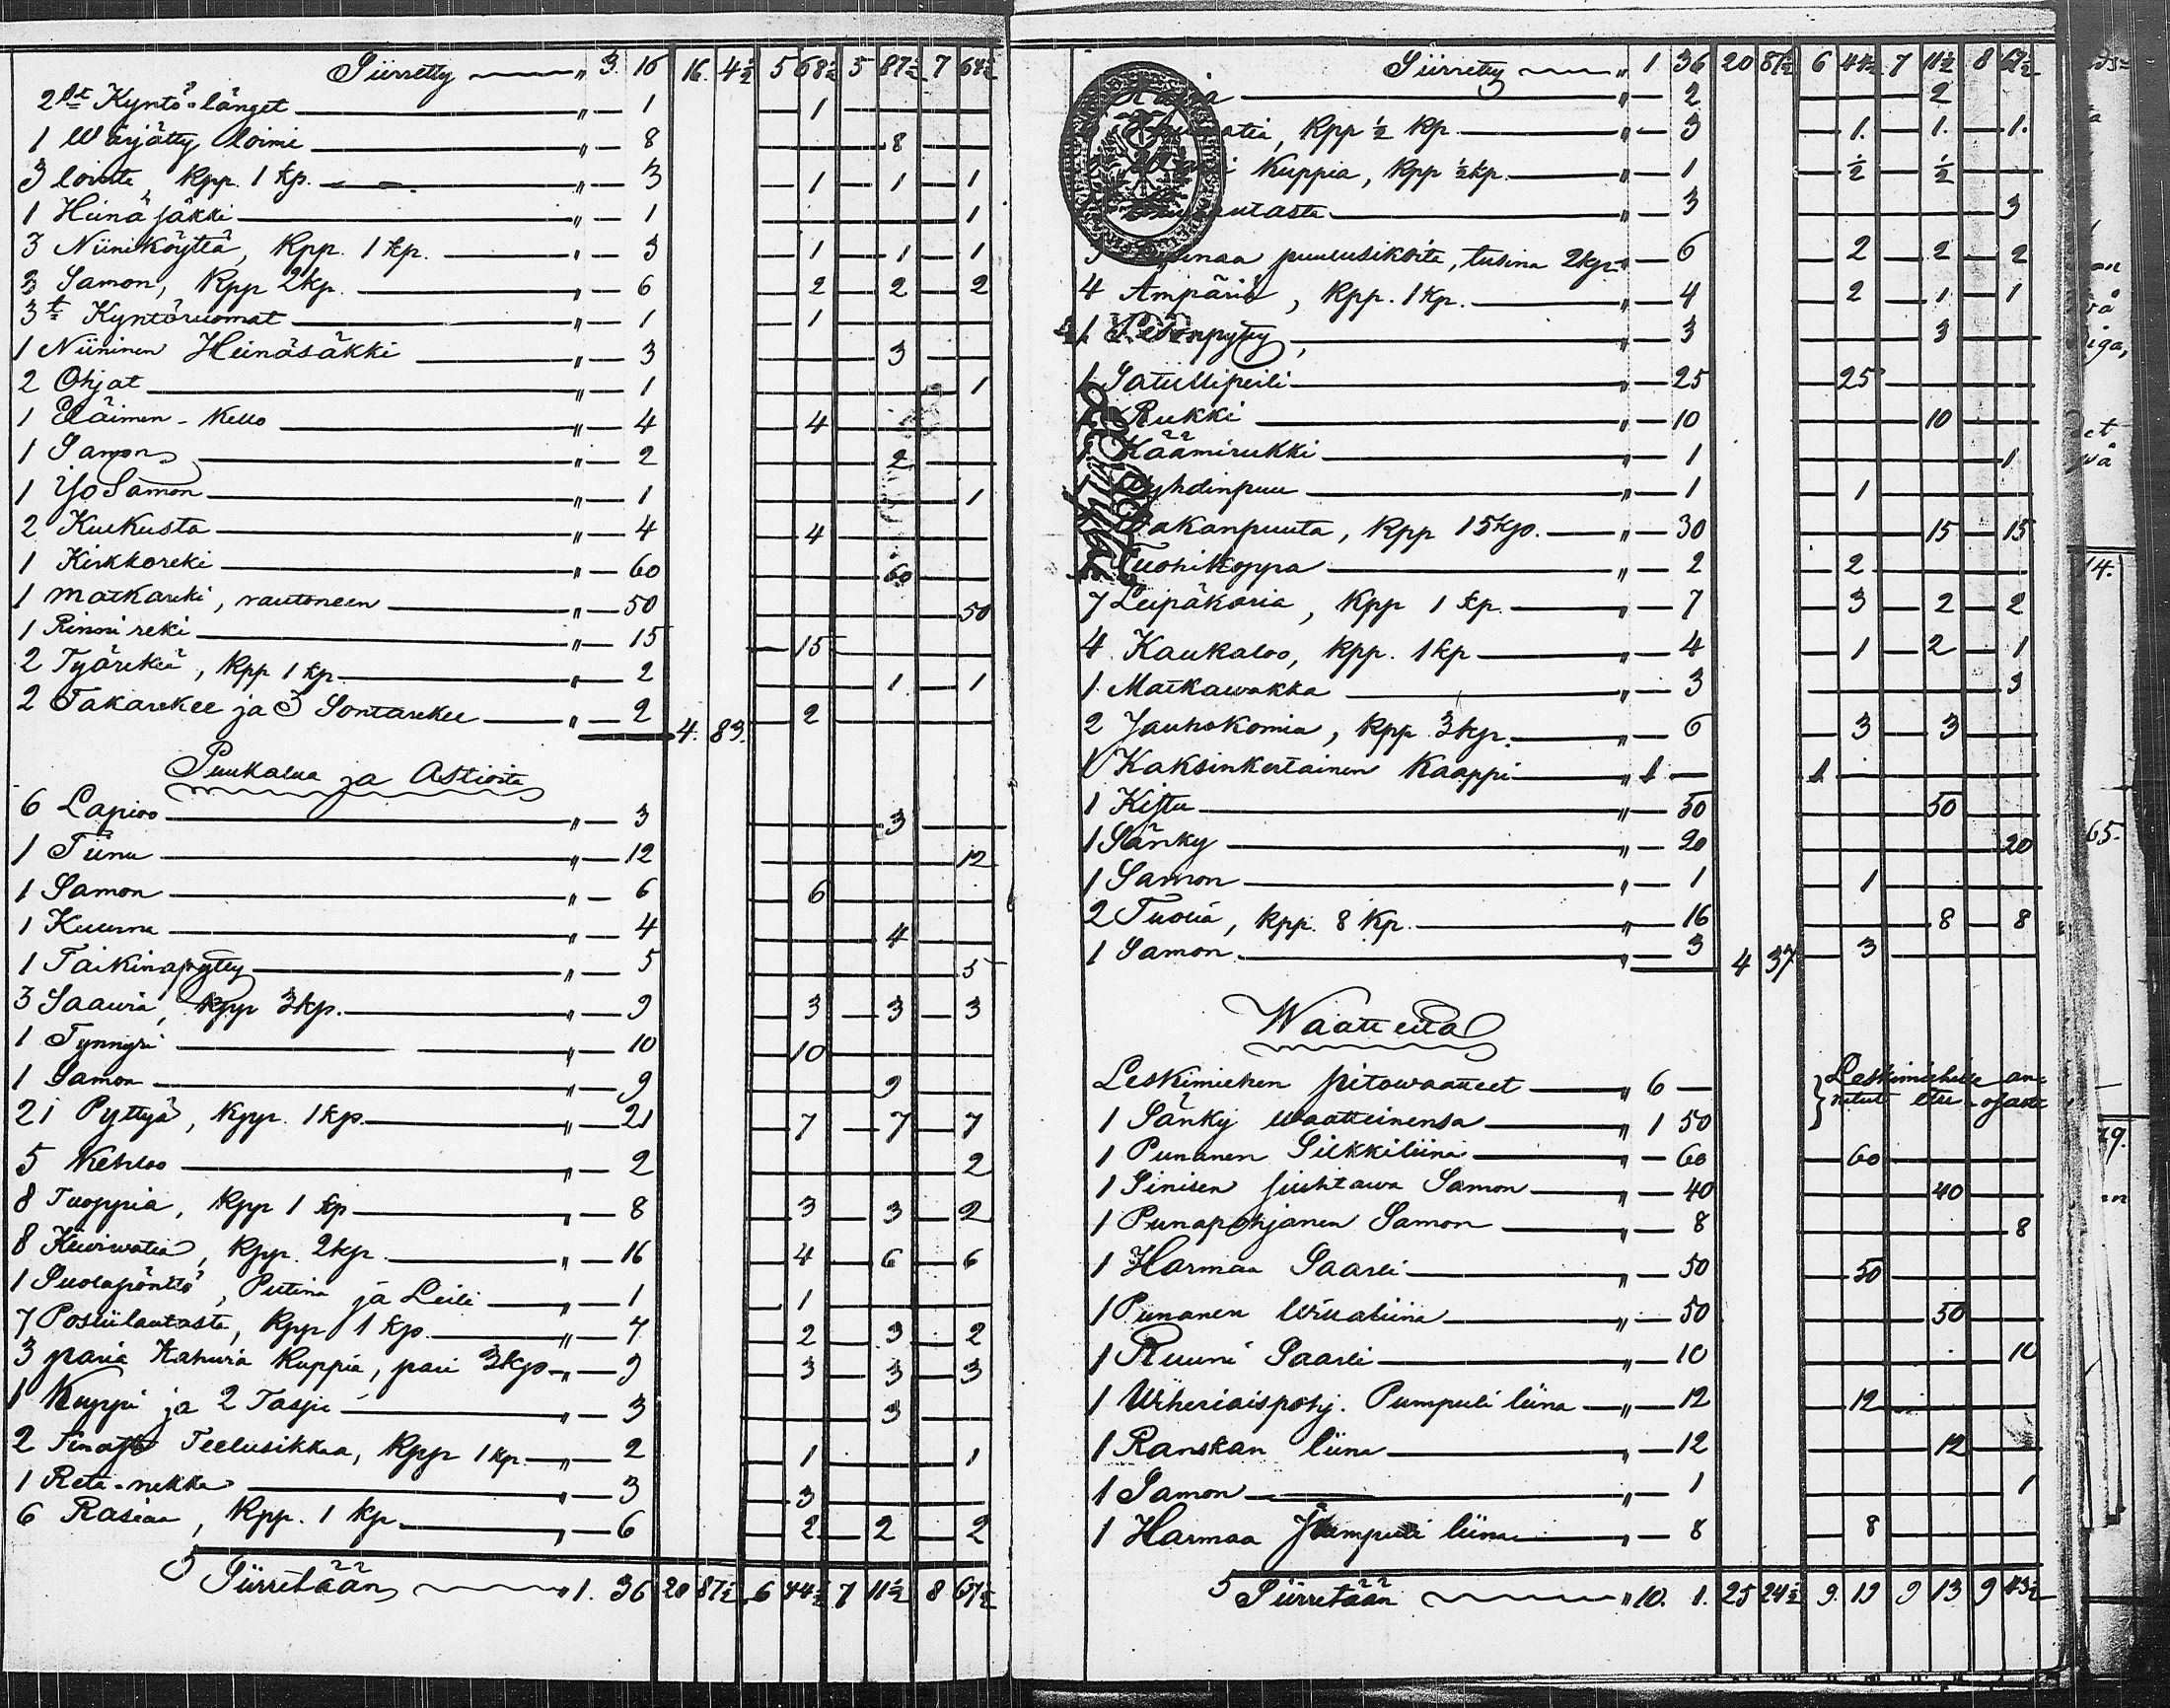 Siirretty „ 3. 16 16. 4½ 5 68½ 5 87½ 7 64½
2 st Kyntö-länget „ 1 1
1 Wärjätty loimi „ 8 8
3 lointa, kpp. 1 kp. „ 3 1 1 1
1 Heinäsäkki „ 1 1
3 Niiniköyttä, kpp. 1 kp. „ 3 1 1 1
3 Samon, kpp 2 kp. „ 6 2 2 2
3 t Kyntöruomat „ 1 1
1 Niininen Heinäsäkki „ 3 3
2 Ohjat „ 1 1
1 Eläimen-Kello „ 4 4
1 Samon „ 2 2
1 Yo Samon „ 1 1
2 Kuekusta „ 4 4
1 Kirkkoreki „ 60 60
1 matkareki, rautoneen „ 50 50
1 Rinnireki „ 15 15
2 Työrekeä, kpp 1 kp „ 2 1 1
2 Takarekee ja 3 Sontarekee „ 2 4. 83. 2
Puukalua ja Astioita
6 Lapioo „ 3 3
1 Tiinu „ 12 12
1 Samon „ 6 6
1 Kuurna „ 4 4
1 Taikinapytty „ 5 5
3 Saawia, kpp 3 kp. „ 9 3 3 3
1 Tynnyri „ 10 10
1 Samon „ 9 9
21 Pyttyä, kpp. 1 kp. „ 21 7 7 7
5 Kehloo „ 2 2
8 Tuoppia, kpp 1 kp „ 8 3 3 2
8 Kuiwatia, kpp. 2 kp. „ 16 4 6 6
1 Suolapönttö, Putina ja Leili „ 1 1
7 Posliilautasta, kpp 1 kp. „ 7 2 3 2
3 paria Kahwia kuppia, pari 3 kp „ 9 3 3 3
1 Kuppi ja 2 Tassi „ 3 3
2 Teelusikkaa, kpp 1 kp. „ 2 1 1
1 Reta-nekka „ 3 3
6 Rasiaa, kpp. 1 kp „ 6 2 2 2
Siirretään „ 1. 36 20 87½ 6 44½ 7 11½ 8 67½
Siirretty „ 1 36 20 87½ 6 44½ 7 11½ 8 67½
„ 2 2
kpp ½ kp. „ 3 1. 1. 1.
Kuppia, kpp ½ kp. „ 1 ½ ½
„ 3 3
puulusikoita, tusina 2 kp. „ 6 2 2 2
4 Ampäriä, kpp. 1 kp. „ 4 2 1 1
1 „ 3 3
1 Satullipeili „ 25 25
Rukki „ 10 10
Käämirukki „ 1 1
Wyhdinpuu „ 1 1
Kakanpuuta, kpp 15 kp. „ 30 15 15
Tuohikoppa „ 2 2
7 Leipäkoria, kpp 1 kp. „ 7 3 2 2
4 Kaukaloo, kpp. 1 kp „ 4 1 2 1
1 Matkawakka „ 3 3
2 Jauhokomia, kpp 3 kp. „ 6 3 3
1 Kaksinkertainen Kaappi „ 1 1
1 Kistu „ 50 50
1 Sänky „ 20 20
1 Samon „ 1 1
2 Tuolia, kpp. 8 kp. „ 16 8 8
1 Samon „ 3 4 37 3
Waatteita
Leskimiehen pitowaatteet „ 6 Leskimiehelle an-
1 Sänky waatteinensa „ 1 50 netut etu-osasta
1 Punanen Silkkiliina „ 60 60
1 Sinisen juihtawa Samon „ 40 40
1 Punapohjanen Samon „ 8 8
1 Harmaa Saarli „ 50 50
1 Punanen Willaliina „ 50 50
1 Ruuni Saarli „ 10 10
1 Wiheriäispohj. Pumpuli liina „ 12 12
1 Ranskan liina „ 12 12
1 Samon „ 1 1
1 Harmaa Pumpuli liina „ 8 8
Siirretään „ 10. 1. 25 24½ 9. 19 9 13 9 43½